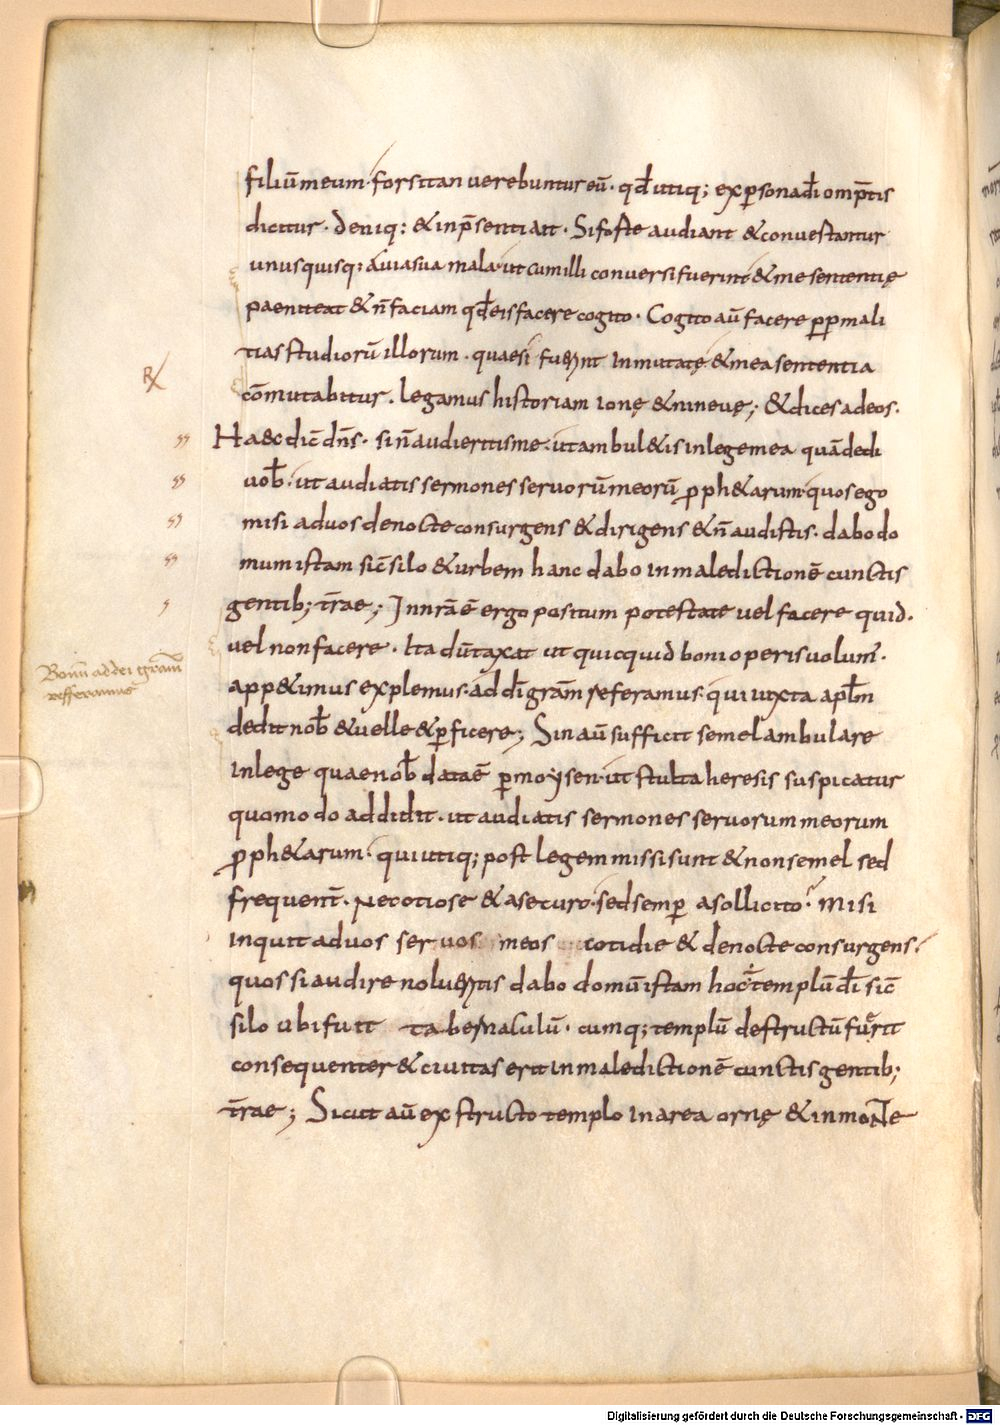 filiū meum· forsitan uerebuntur eū· qđ utiq; ex ꝑsona dī omp̄tis
dicitur· Deniq: & inp̄senti ait· Si forte audiant & conuertantur
unusquisq; a uia sua mala· ut cum illi conuersi fuerint & me sententię
paeniteat & n̄ faciam qđ eis facere cogito· Cogito aū facere ꝑꝑ mali
tia studiorū illorum· quae si fuerint inmutatę & mea sententia
cōmutabitur. legamus historiam ionę & nineuę; & dices ad eos·
Haec dic̄ dn̄s· si n̄ audieritis me· ut ambul&is in lege mea quā dedi
uob̄· ut audiatis sermones seruorū meorū ꝓph&arum· quos ego
misi ad uos de nocte consurgens & dirigens & n̄ audistis· dabo do
mum istam sic̄ silo & urbem hanc dabo in maledictionē cunctis
gentib; t̄rae; In nr̄a ē ergo positum potestate uel facere quid·
uel non facere· Ita dūtaxat ut quicquid boni operis uolum̄·
app&imus explemus· ad dī gr̄am referamus· qui iuxta apl̄m
dedit nob̄ & uelle & ꝑficere; Sin aū sufficit semel ambulare
in lege quae nob̄ data ē ꝑ moysen· ut stulta heresis suspicatur
quomodo addidit· ut audiatis sermones seruorum meorum
ꝓph&arum· qui utiq; post legem missi sunt & non semel sed
frequent̄· Nec otiose & a securo· sed semꝑ a sollicito? Misi
inquit ad uos seruos meos cotidie & de nocte consurgens·
quos si audire nolueritis dabo domū istam hoc ÷ templū dī sic̄
silo ubi fuit tabernaculū· cumq; templū destructū fuerit
consequenter & ciuitas erit in maledictionē cunctis gentib;
t̄rae; Sicut aū exstructo templo in area ornę & in moNTe
Bonū ad dei gratiā
refferamus
Digitalisierung gefördert durch die Deutsche Forschungsgemeinschaft - DFG